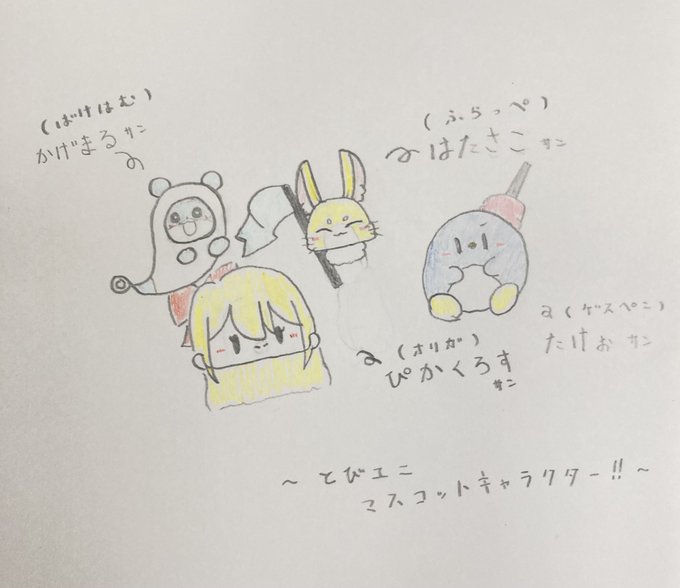 (ばけはむ)
かげまるサン
(ふらっぺ)
はたさこサン
(ゲスペニ)
たけぉサン
(オリガ)
ぴかくろす
サン
～とびエニ
マスコットキャラクター!!～